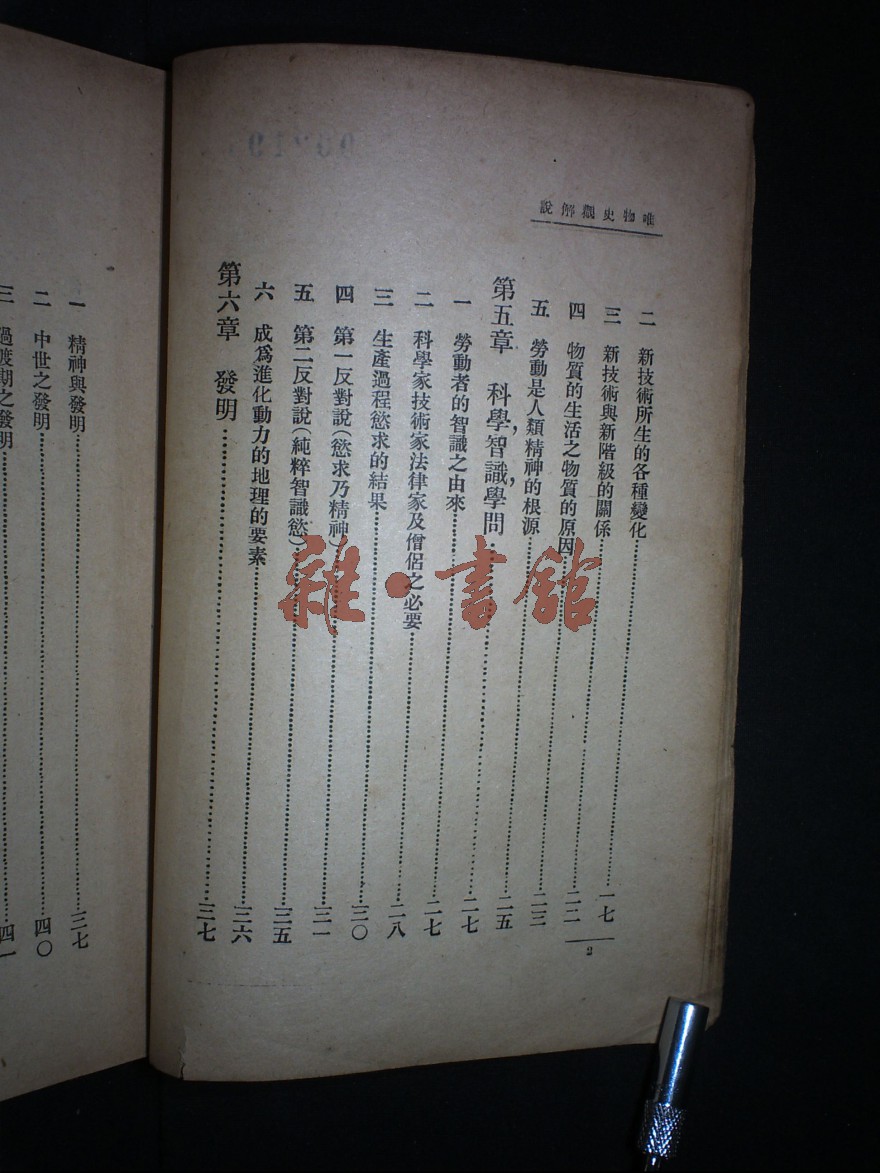 唯物史觀解說
二 新技術所生的各種變化……一七
三 新技術與新階級的關係……二二
四 物質的生活之物質的原因……二三
五 勞動是人類精神的根源……二五
第五章 科學，智識，學問……二七
一 勞動者的智識之由來……二七
二 科學家技術家法律家及僧侶之必要……二八
三 生產過程慾求的結果……三〇
四 第一反對說（慾求乃精神）……三一
五 第二反對說（純粹智識慾）……三五
六 成爲進化動力的地理的要素……三六
第六章 發明……三七
2
一 精神與發明……三七
二 中世之發明……四〇
三 過渡期之發明……四一
雜·書館